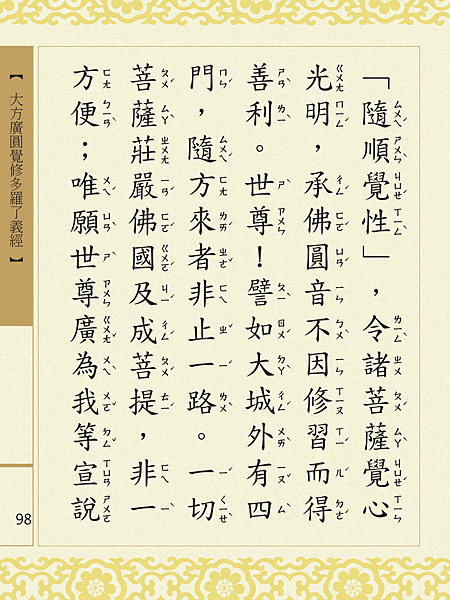 「隨順覺性」，令諸菩薩覺心
光明，承佛圓音不因修習而得
善利。世尊！譬如大城外有四
門，隨方來者非止一路。一切
菩薩莊嚴佛國及成菩提，非一
方便；唯願世尊廣為我等宣說
【大方廣圓覺修多羅了義經】
98